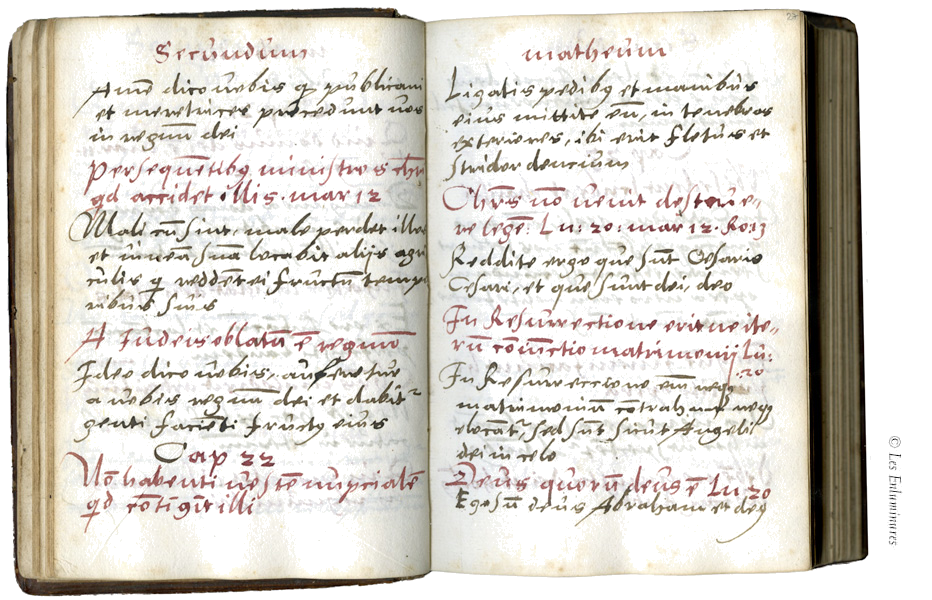 Secundum
Amē dico vobis q publicani
et meretrices precedunt vos
in regnū dei
persequētibq ministros chri
qd accidet illis. mar 12
Mali cū sint, male perdet illos
et vineā suā locabit alijs agri
culis q reddēt ei fructū tempo
ribus suis
A Iudeis oblatū ē regnū
Ideo dico vobis, auferetur
a vobis regnū dei et dabit
genti faciēti fructq eius
Cap 22
Nō habenti vestem nupcialē
qd cōtigit illi
matheum
27
Ligatis pedibq et manibus
eius mittite eū, in tenebras
exteriores, ibi erit fletus et
stridor dencium
Chrs nō venit destrue„
re legē: Lu: 20: mar 12. Ro: 13
Reddite ergo que sūt Cesaris
Cesari, et que sunt dei, deo
In Resurrectione erit ne ite„
rū cōiūctio matrimonij Lu:
.20
In Resurreccione em neqq
matrimoniū cōtrahūt neqq
elocāt, sed sūt sicut Angeli
dei in celo
Deus quorū deus ē Lu. 20
Ego sū deus Abraham et deq
© Les Enluminures